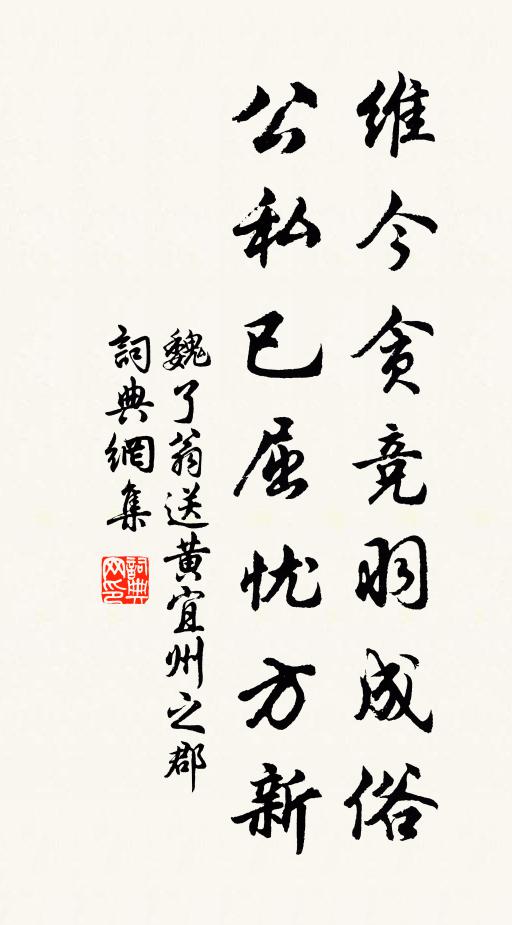 维今贪竞羽成俗
公私已屈忧方新
魏了翁送黄宜州之郡
詞典網集
詞典网印